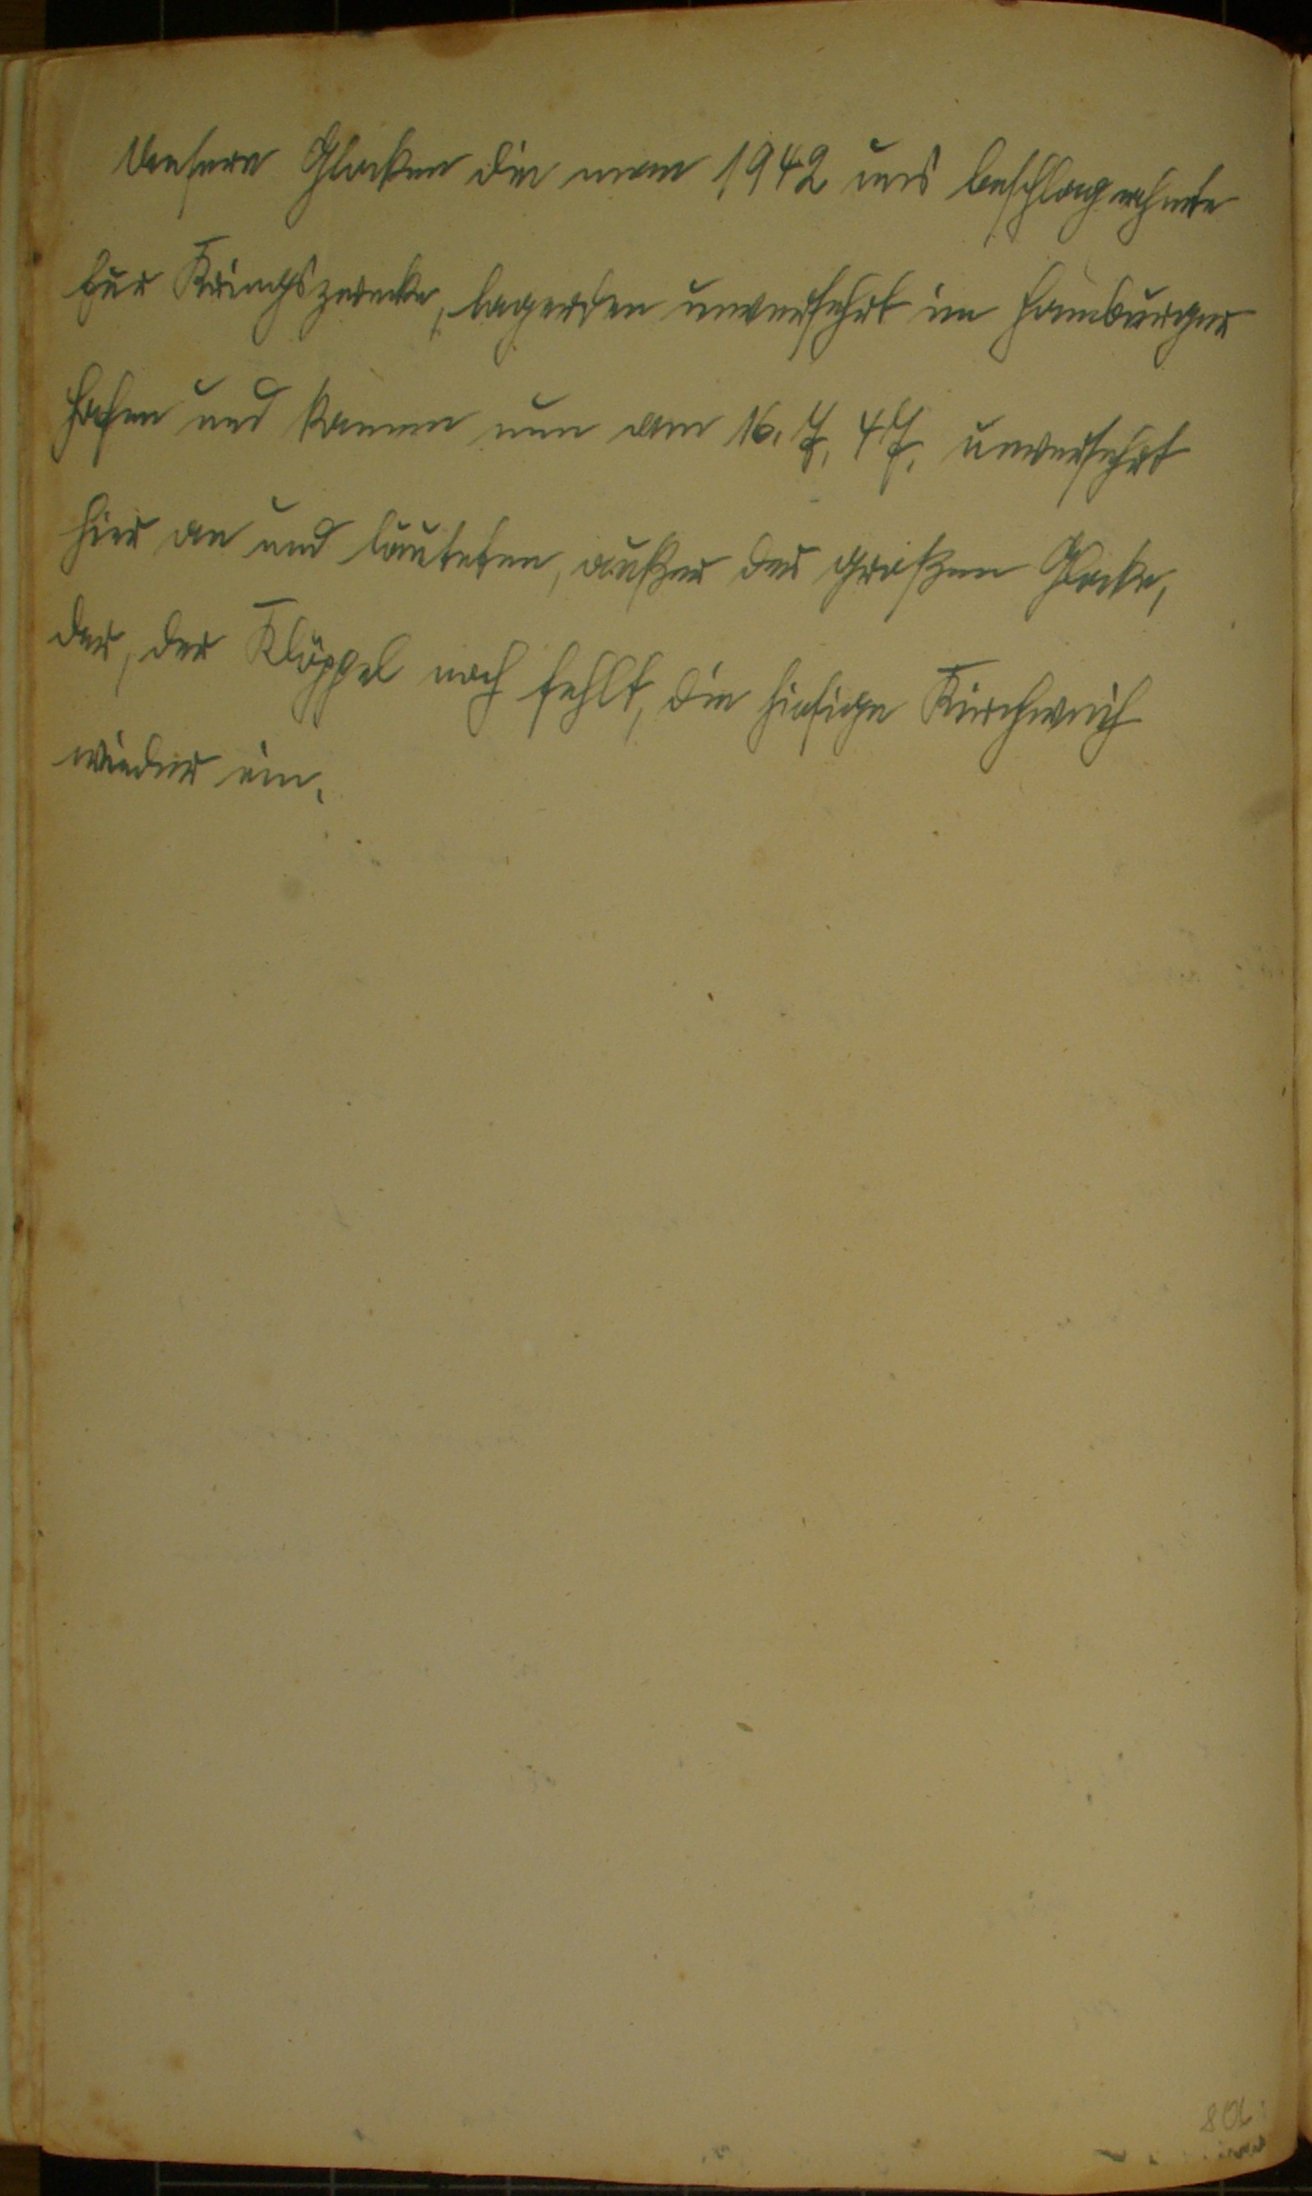 Unsere Glocken die man 1942 uns beschlagnahmte
für Kriegszwecke, lagerten unversehrt im Hamburger
Hafen und kamen nun am 16. 7. 47. unversehrt
hier an und läuteten, außer der großen Glocke,
der, der Klöppel noch fehlt, die hiesige Kirchweih
wieder ein.